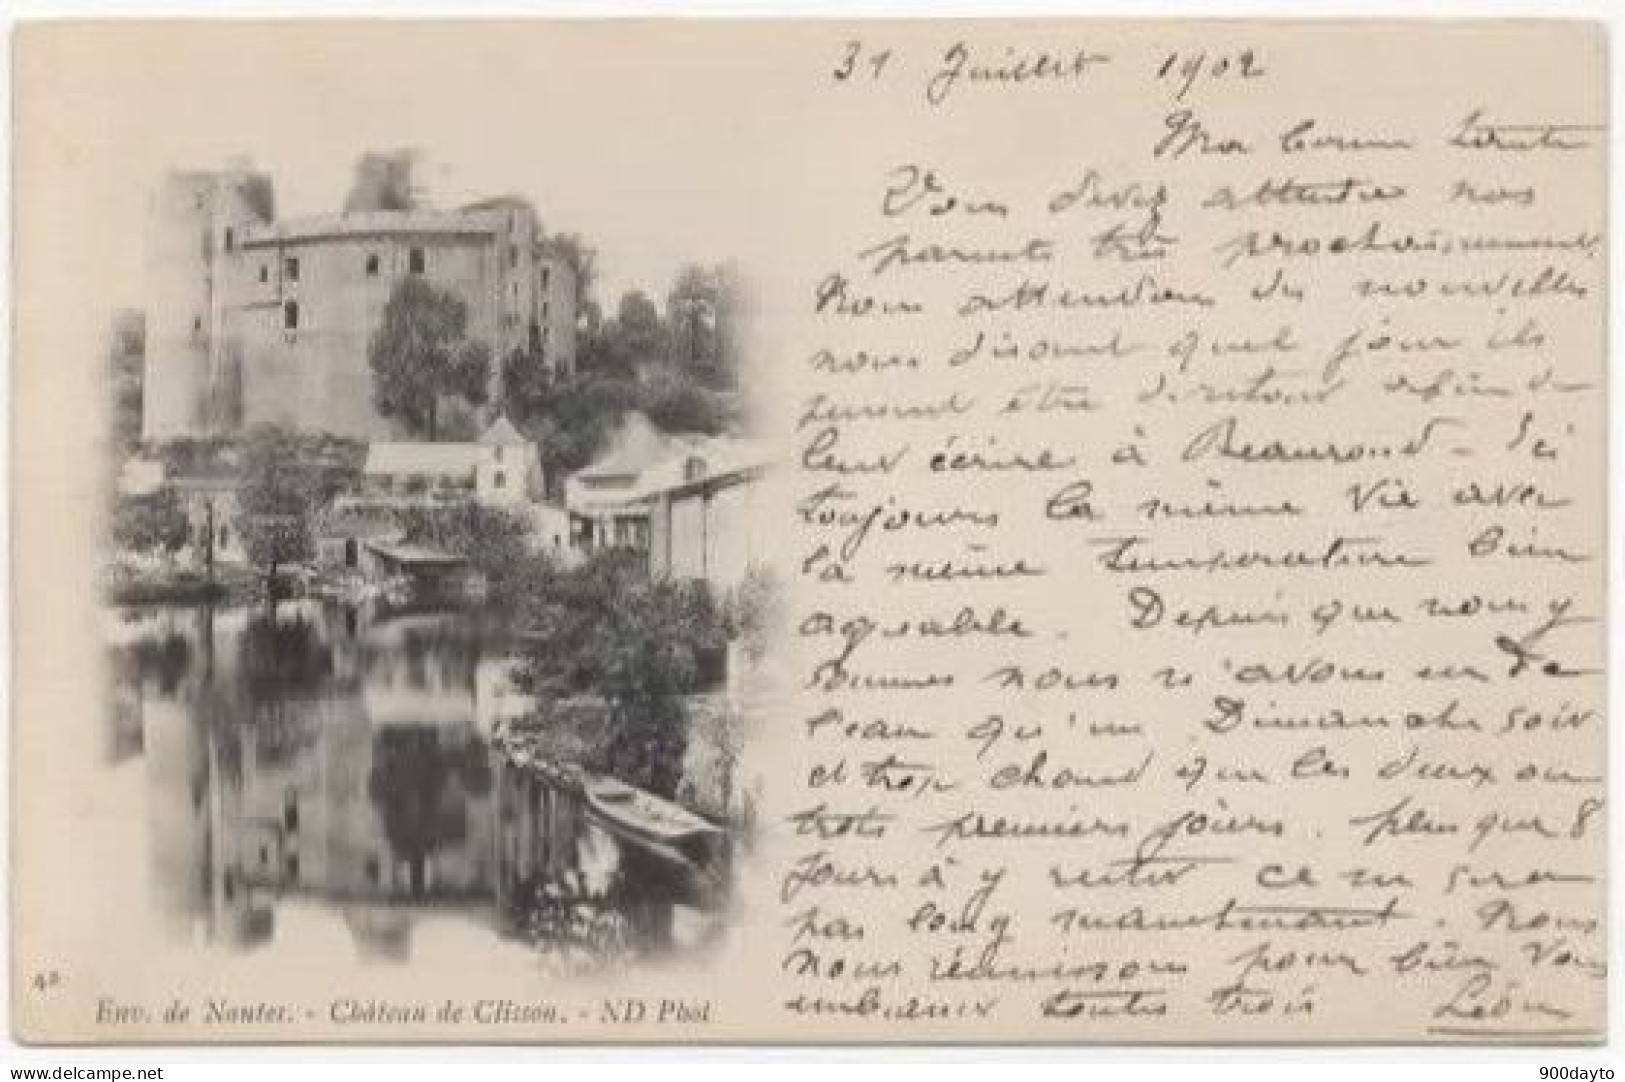 31 Juillet 1902
Ma bonne tante
Vous devez attendre nos
parents très prochainement.
Nous attendons des nouvelles
nous disant quel jour ils
seront être de retour afin de
leur écrire à Beaurond - Ici
toujours la même vie avec
la même température bien
agréable. Depuis que nous y
sommes nous n'avons eu de
l'eau qu'un Dimanche soir
et trop chaud que les deux ou
trois premiers jours. plus que 8
Jours à y rester ce ne sera
pas long maintenant. Nous
nous réunissons pour bien vous
embrasser toutes trois Léon
42
Env. de Nantes. - Château de Clisson. - ND Phot
delcampe.net
900dayto